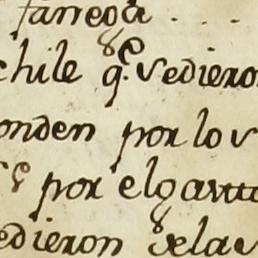 Tarrega . . .
chile q.e vedieron
onden por lo v
por elgasto
edieron delas